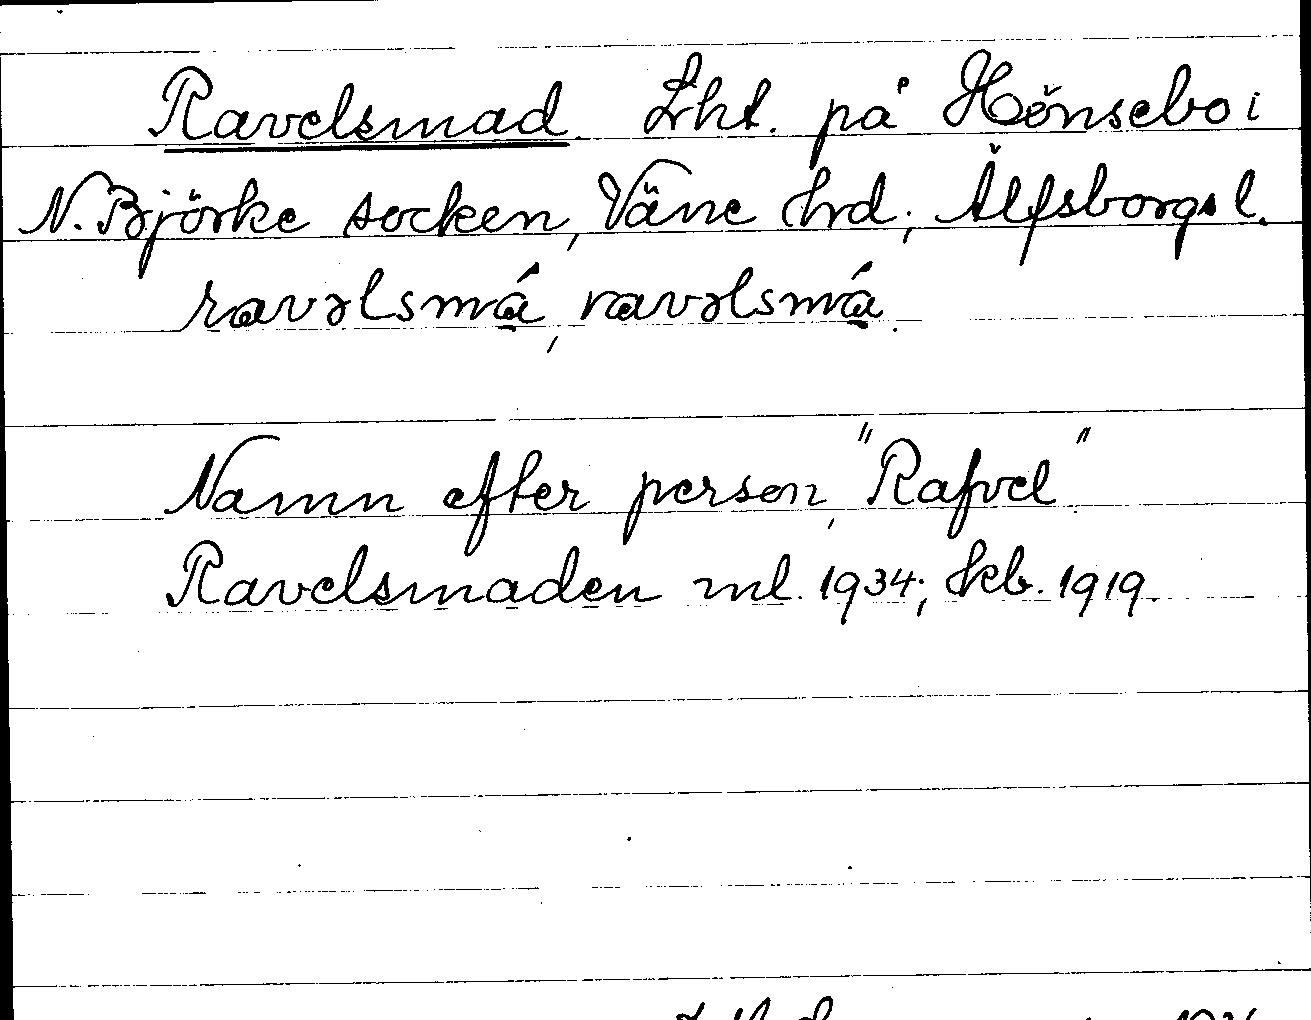 Ravelsmad. Lht. på Hönsebo i
N. Björke socken, Väne hrd; Älfsborgs l.
ravəlsmá, ravəlsmá.
Namn efter person, "Rafvel".
Ravelsmaden ml. 1934; skb. 1919.